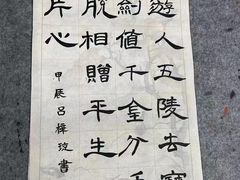 遊人五陵去寶
劍值千金分手
脫相贈平生
片心
甲辰呂書